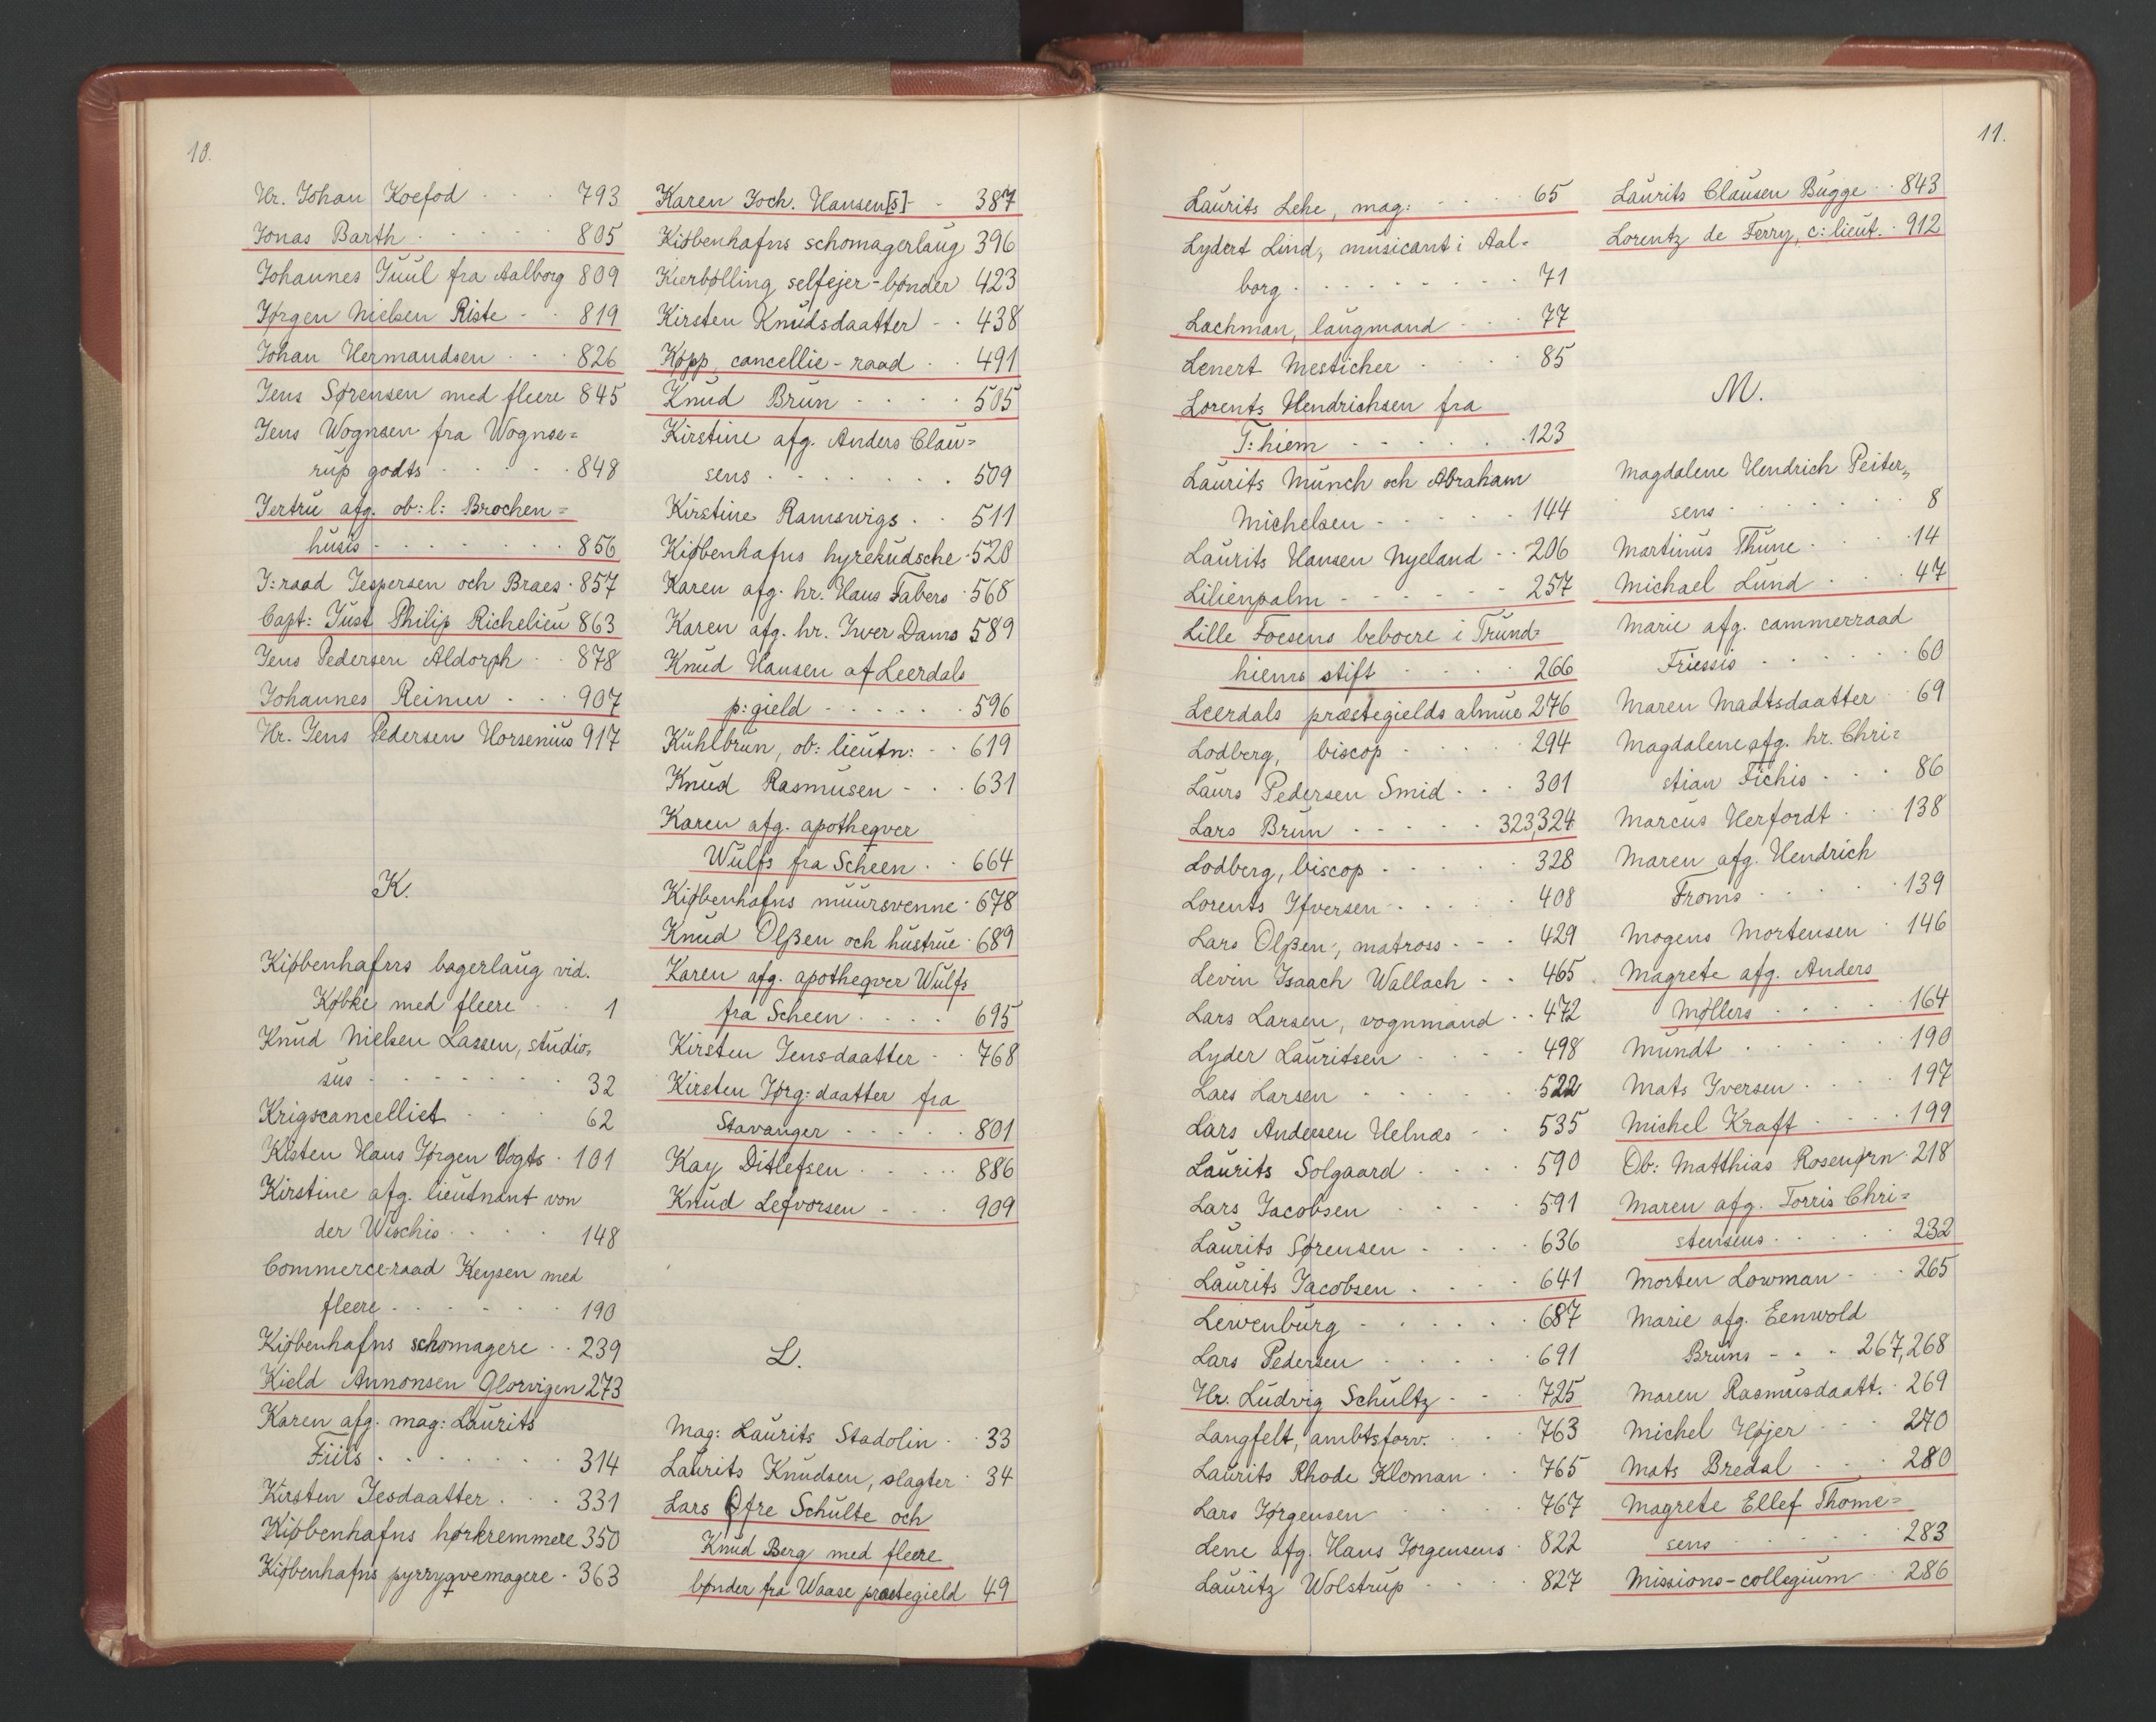 10.
Hr. Johan Koefod - - - 793
Jonas Barth - - - - - 805
Johannes Juul fra Aalborg 809
Jørgen Nielsen Riste - - 819
Johan Hermandsen - - - 826
Jens Sørensen med fleere 845
Jens Wognsen fra Wognse=
rup godts - - - - - 848
Jertru afg. ob: l: Brochen=
husis - - - - - - - - 856
J: raad Jespersen och Braes - 857
Capt: Just Philip Richelieu 863
Jens Pedersen Aldorph - - 878
Johannes Reimer - - - 907
Hr. Jens Pedersen Horsenius 917
K.
Kiøbenhafns bagerlaug vid.
Købke med fleere - - 1
Knud Nielsen Lassen, studio,
sus - - - - - - - 32
Krigscancelliet - - - 62
Kisten Hans Jørgen Vogts - 101
Kirstine afg. lieutnant von
der Wischis - - - - 148
Commerce-raad Keysen med
fleere - - - - - - 190
Kiøbenhafns schomagere - - 239
Kield Annonsen Glorvigen 273
Karen afg. mag: Laurits
Fiils - - - - - - - 314
Kirsten Jesdaatter - - - 331
Kiøbenhafns hørkremmere 350
Kiøbenhafns pyrryqvemagere - 363
Karen Joch. Hansen[s] - - 387
Kiøbenhafns schomagerlaug 396
Kierbølling selfejer-bønder 423
Kirsten Knudsdaatter - - 438
Køpp, cancellie-raad - - 491
Knud Brun - - - - 505
Kirstine afg. Anders Clau=
sens - - - - - - - 509
Kirstine Ramswigs - - 511
Kiøbenhafns hyrekudsche - 528
Karen afg. hr. Hans Fabers - 568
Karen afg. hr. Iver Dams 589
Knud Hansen af Leerdals
p: gield - - - - - - 596
Kühlbrun, ob: lieutn: - - 619
Knud Rasmusen - - - 631
Karen afg. apotheqver
Wulfs fra Scheen - - 664
Kiøbenhafns muursvenne - 678
Knud Olßen och hustrue - 689
Karen afg. apotheqver Wulfs
fra Scheen - - - - 695
Kirsten Jensdaatter - - 768
Kirsten Jørg: daatter fra
Stavanger - - - - - 801
Kay Ditlefsen - - - - - 886
Knud Lefvorsen - - - 909
L.
Mag: Laurits Stadolin - - 33
Laurits Knudsen, slagter - 34
Lars Øfre Schulte och
Knud Berg med fleere
bønder fra Waase præstegield 49
11.
Laurits Lehe, mag: - - - - 65
Lydert Lind, musicant i Aal-
borg - - - - - - - - - 71
Lachman, laugmand - - - 77
Lenert Mesticher - - - - 85
Lorents Hendrichsen fra
T: hiem - - - - - - 123
Laurits Munch och Abraham
Michelsen - - - - - 144
Laurits Hansen Nyeland - - 206
Lilienpalm - - - - - - 257
Lille Foesens beboere i Trund=
hiems stift - - - - - 266
Leerdals præstegields almue 276
Lodberg, biscop - - - - - 294
Laurs Pedersen Smid - - - 301
Lars Brun - - - - - 323,324
Lodberg, biscop - - - - - 328
Lorents Ifversen - - - - 408
Lars Olßen, matross - - - 429
Levin Isaach Wallach - - 465
Lars Larsen, vognmand - - 472
Lyder Lauritsen - - - - 498
Lars Larsen - - - - - - 522
Lars Andersen Helnæs - - 535
Laurits Solgaard - - - - 590
Lars Jacobsen - - - - 591
Laurits Sørensen - - - - 636
Laurits Jacobsen - - - - 641
Lewenburg - - - - - - 687
Lars Pedersen - - - - - 691
Hr. Ludvig Schultz - - - 725
Langfelt, ambtsforv. - - - 763
Laurits Rhode Kloman - - 765
Lars Jørgensen - - - - 767
Lene afg. Hans Jørgensens - 822
Lauritz Wolstrup - - - - 827
Laurits Clausen Bugge - - 843
Lorentz de Ferry, c: lieut. - 912
M.
Magdalene Hendrich Peiter,,
sens - - - - - - - 8
Martinus Thune - - - - 14
Michael Lund - - - - 47
Marie afg. cammerraad
Friessis - - - - - - 60
Maren Madtsdaatter - - 69
Magdalene afg. hr. Chri=
stian Fichis - - - 86
Marcus Herfordt - - - 138
Maren afg. Hendrich
Froms - - - - - - 139
Mogens Mortensen - 146
Magrete afg. Anders
Møllers - - - - - 164
Mundt - - - - - - - 190
Mats Iversen - - - - 197
Michel Kraft - - - - 199
Ob: Matthias Rosenørn - 218
Maren afg. Torris Chri=
stensens - - - - - 232
Morten Lowman - - - 265
Marie afg. Eenwold
Bruns - - - 267,268
Maren Rasmusdaatt. - 269
Michel Højer - - - 270
Mats Bredal - - - 280
Magrete Ellef Thome=
sens - - - - - - 283
Missions-collegium - - 286